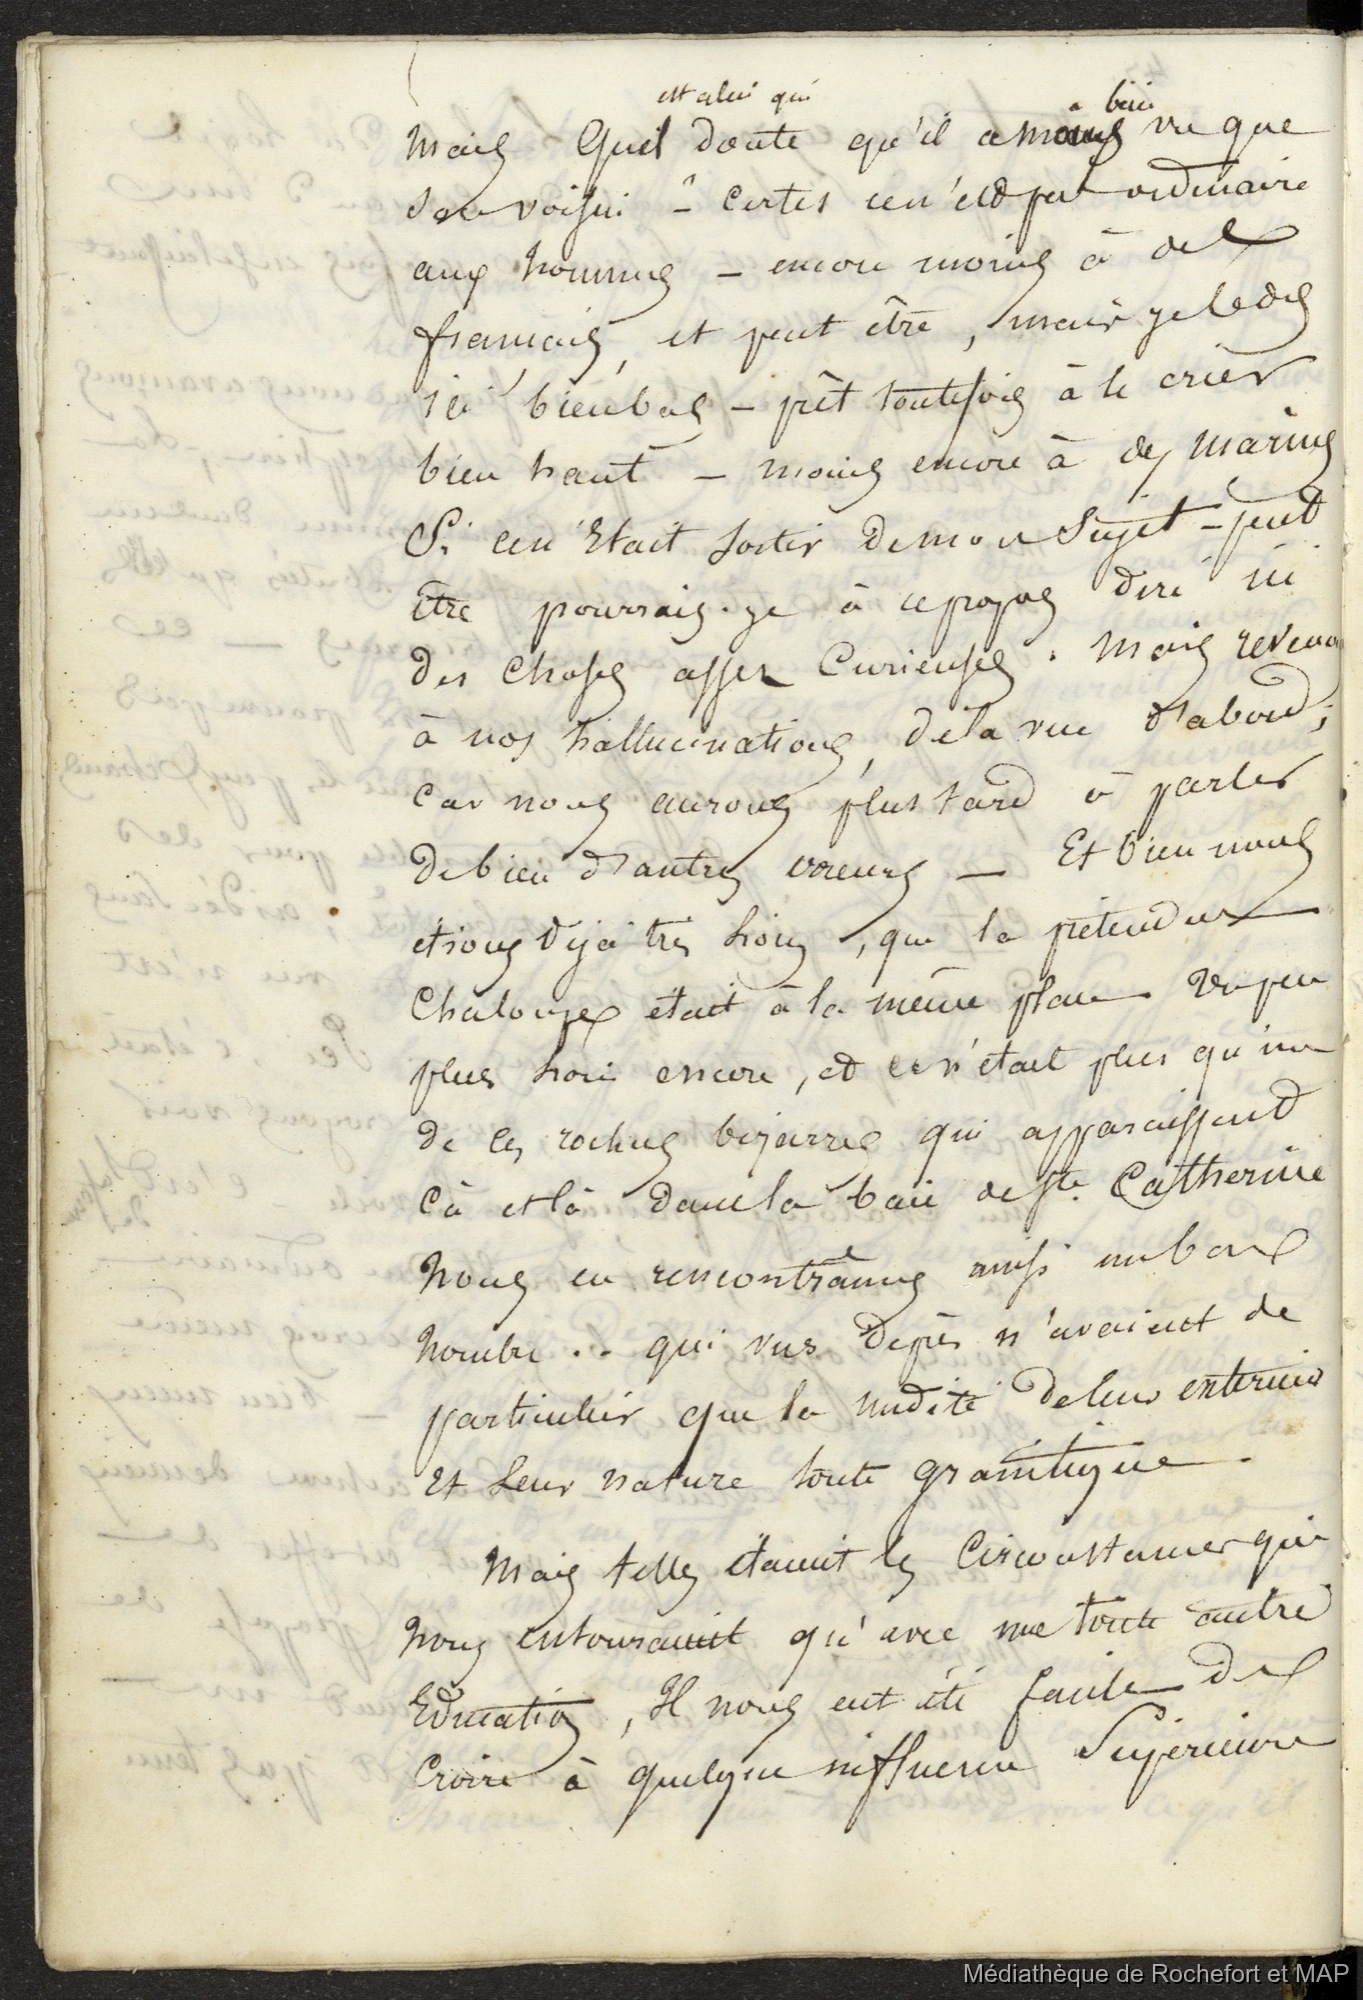 est celui qui bien
Mais Quel doute qu'il a moins vu que
son voisin - Certes ce n'est pas ordinaire
aux hommes - encore moins à des
français, et peut être, mais je le dis
ici bien bas - prêt toutefois à le crier
bien haut - moins encore à des marins
Si ce n'était sortir de mon Sujet - peut
être pourrais-je à ce propos dire ici
des choses assez Curieuses. Mais revenons
à nos hallucinations, de la vue d'abord;
car nous aurons plus tard à parler
de bien d'autres erreurs - Et bien nous
étions déjà très loin, que la prétendue
Chaloupe était à la même place. Un peu
plus loin encore, et ce n'était plus qu'un
de ces rochers bizarres qui apparaissent
çà et là dans la baie de Ste. Catherine
Nous en rencontrâmes ainsi un bon
nombre .. qui vus de près n'avaient de
particulier que la nudité de leur extérieur
et leur nature toute granitique.
Mais telles étaient les Circonstances qui
nous entouraient qu'avec une toute autre
Education, Il nous eut été facile de
Croire à quelque influence Supérieure
Médiathèque de Rochefort et MAP